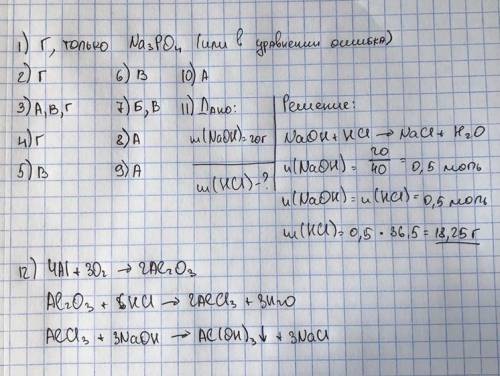 1) Г, только Na₃PO₄ (или в уравнении ошибка)
2) Г
3) А, В, Г
4) Г
5) В
6) В
7) Б, В
8) А
9) А
10) А
11) Дано:
m(NaOH)=20г
m(HCl)-?
Решение:
NaOH + HCl → NaCl + H₂O
n(NaOH) = 20/40 = 0,5 моль
n(NaOH) = n(HCl) = 0,5 моль
m(HCl) = 0,5 · 36,5 = 18,25 г
12) 4Al + 3O₂ → 2Al₂O₃
Al₂O₃ + 6HCl → 2AlCl₃ + 3H₂O
AlCl₃ + 3NaOH → Al(OH)₃↓ + 3NaCl